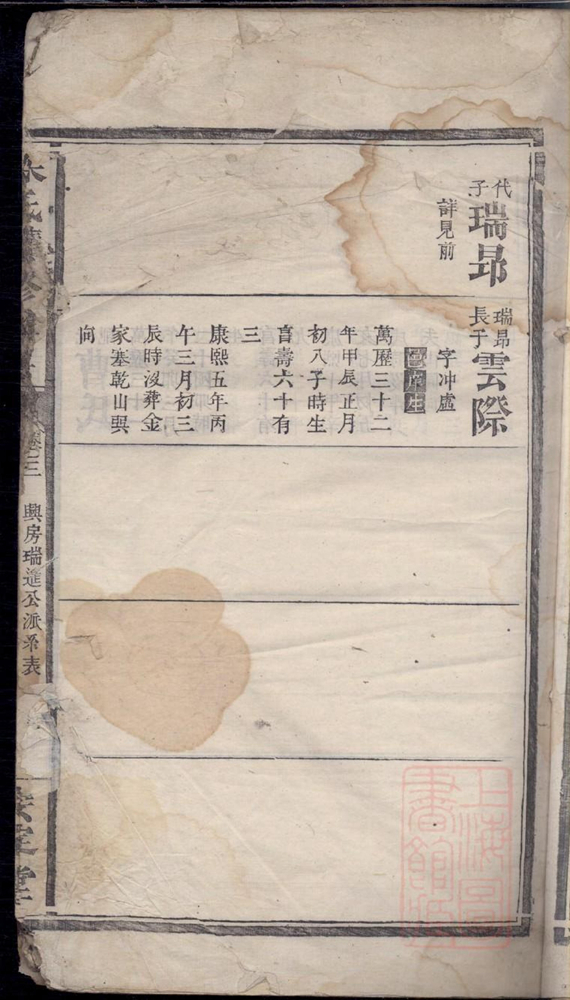 代子瑞昂
詳見前
瑞昂長子雲際
字冲盧
邑庠生
萬歷三十二
年甲辰正月
初八子時生
享壽六十有
三
康熙五年丙
午三月初三
辰時沒葬金
家塞乾山㢲
向
氏修譜 卷三 興房瑞進公派系表 安定堂
上海圖書館藏